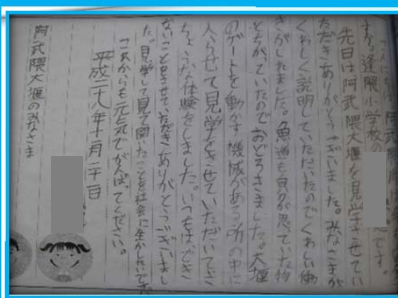 逢隈小学校の　です。
先日は阿武隈大堰を見学させてい
ただきありがとうございました。みなさまが
くわしく説明していただいたのでくわしい働
きがしれました。魚道も自分が思っていた物
とちがっていたのでおどろきました。大堰
のゲートを動かす機械がある所の中に
入らせて見学させていただいてき
ちょうな体験をしました。いつもはでき
ないことをさせていただきありがとうございまし
た。見学して見て聞いたことを社会に生かしたいです。
これからも元気でがんばってください。
平成二十八年十一月二十日
阿武隈大堰のみなさま